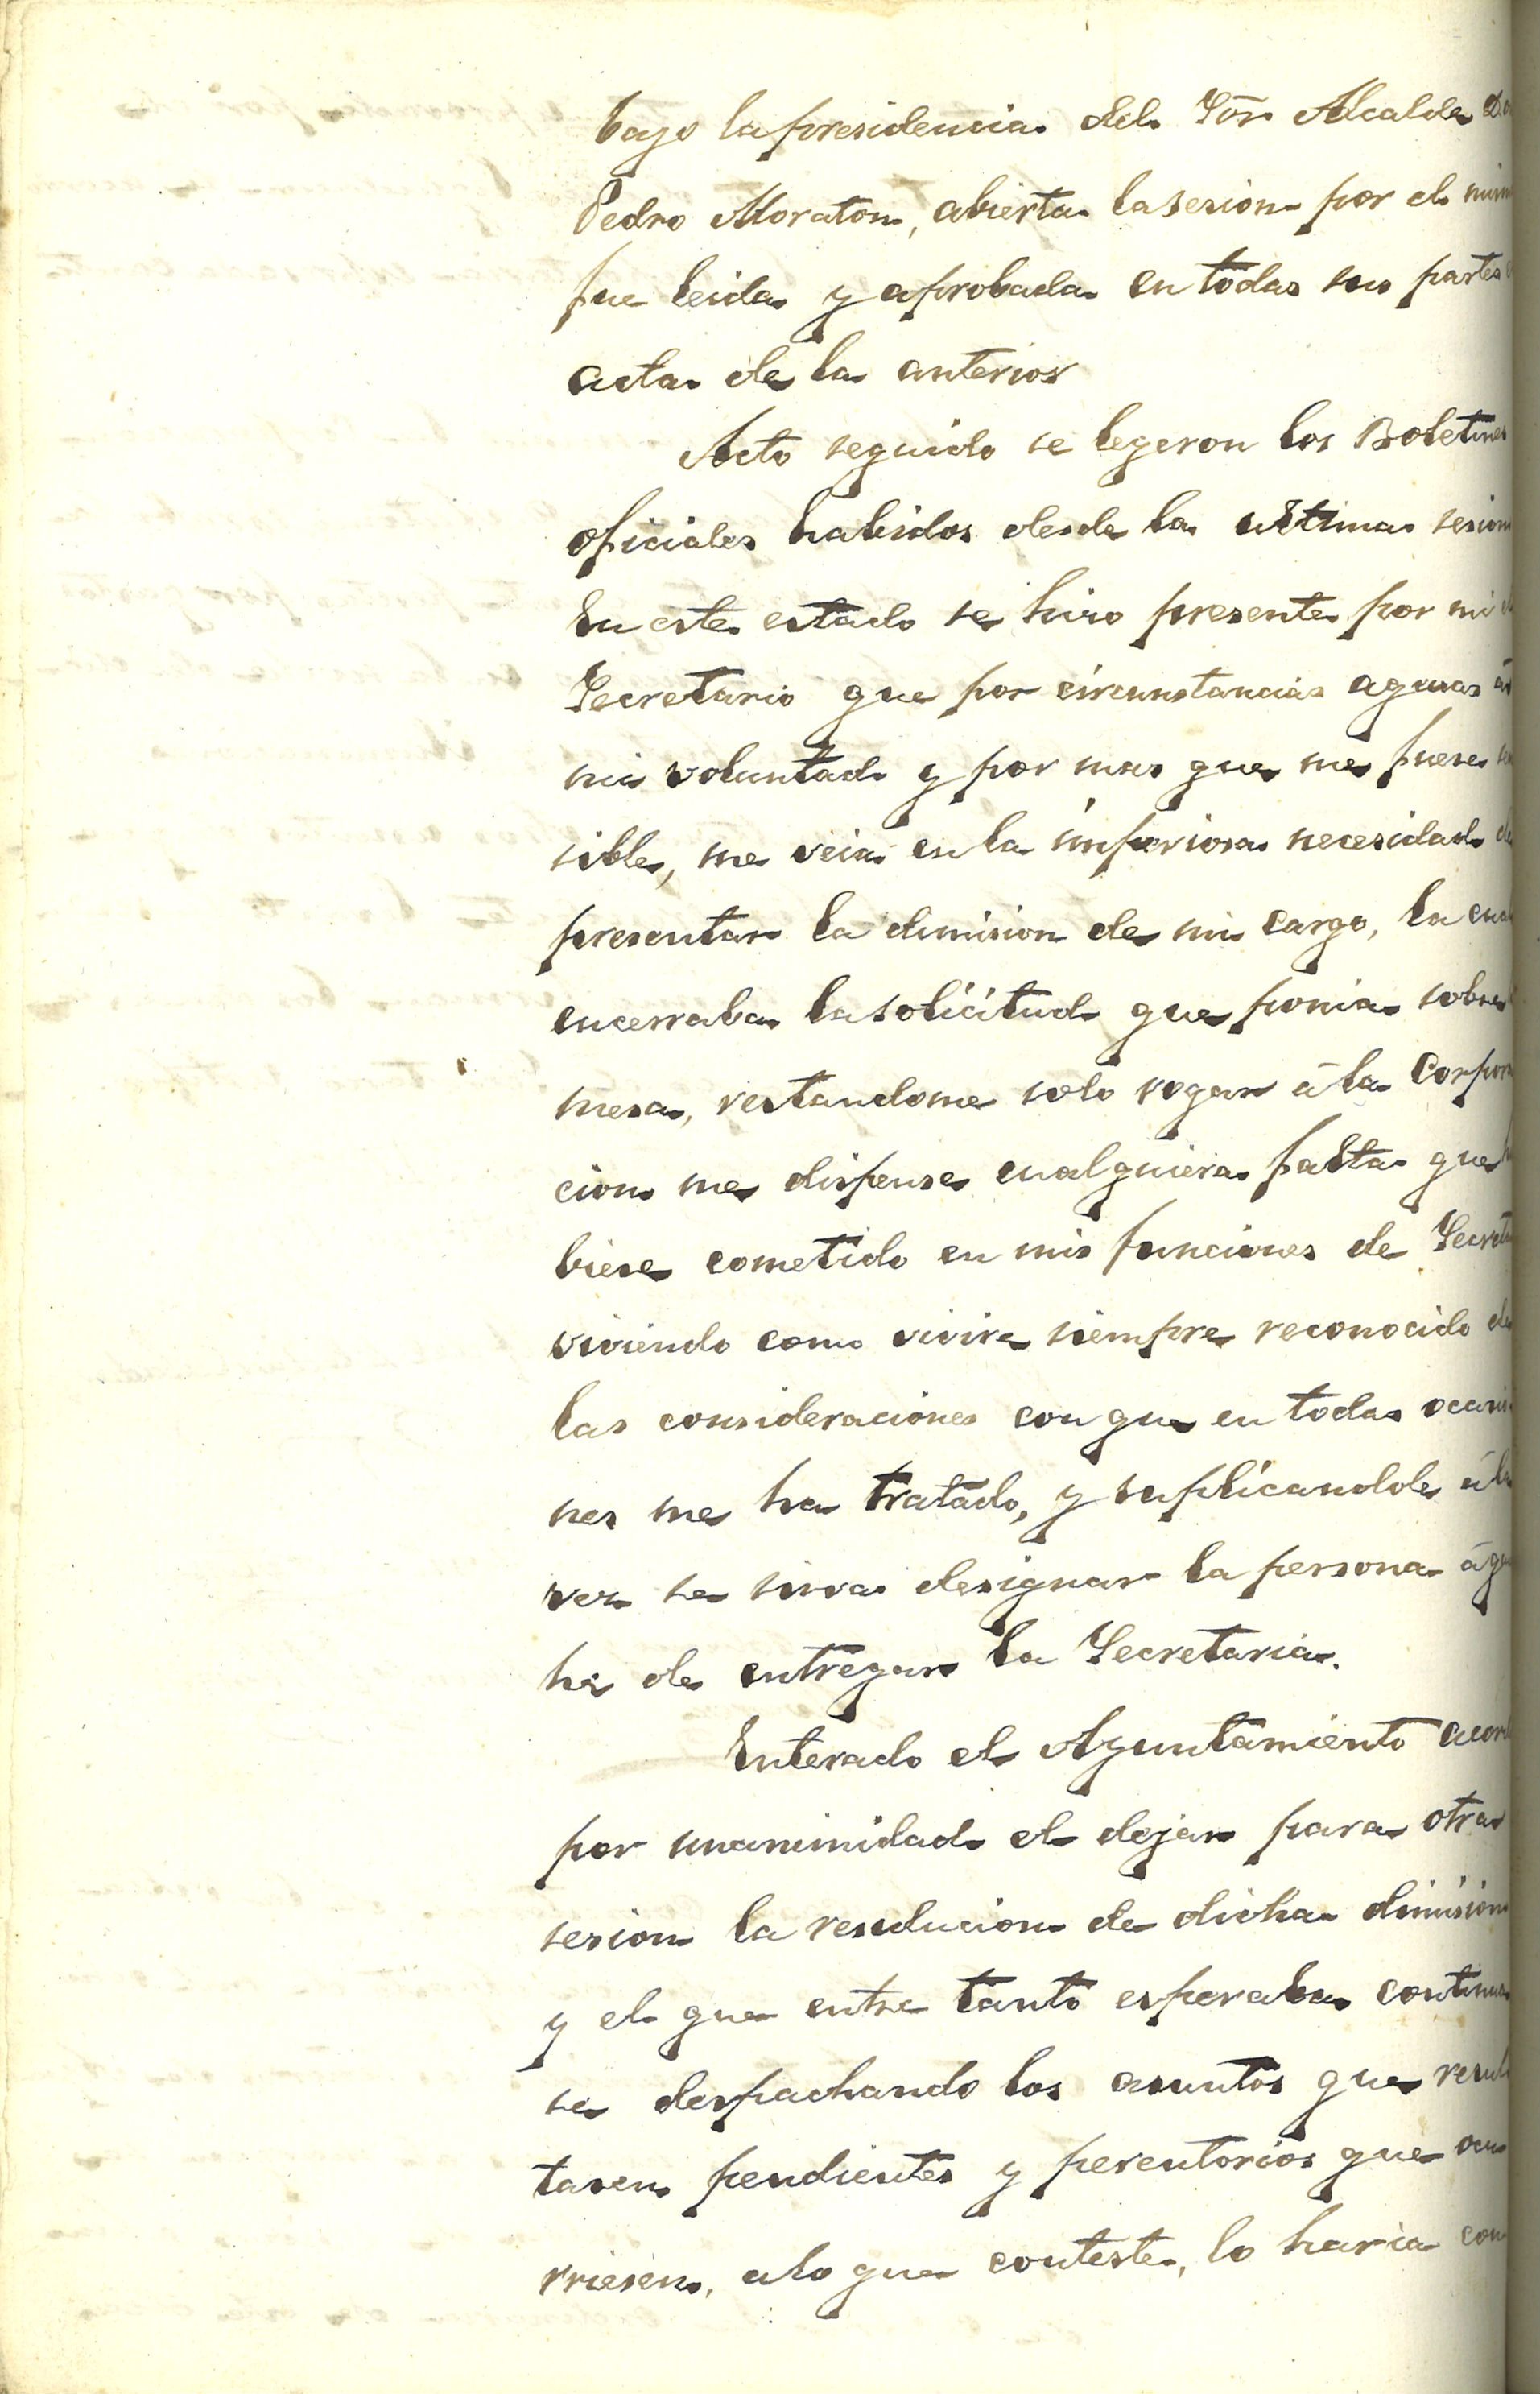 bajo la presidencia del Sōr Alcalde Do
Pedro Moraton, abierta la sesion por el mism
fue leida y aprobada en todas sus partes
acta de la anterior
Acto seguido se leyeron los Boletines
oficiales habidos desde la ultima sesion
En este estado se hizo presente por mi el
Secretario que por circunstancias agenas á
mi voluntad y por mas que me fuese sen
sible, me veia en la imperiosa necesidad de
presentar la dimision de mi cargo, la cual
encerraba la solicitud que ponia sobre
mesa, restandome solo rogar á la Corpora
cion me dispense cualquiera falta que hu
biese cometido en mis funciones de Secreta
viviendo como vivire siempre reconocido de
las consideraciones con que en todas ocasio
nes me ha tratado, y suplicandole á la
vez se sirva designar la persona á que
he de entregar la Secretaria.
Enterado el Ayuntamiento acord
por unanimidad el dejar para otra
sesion la resolucion de dicha dimision
y el que entre tanto esperaba continua
se despachando los asuntos que resul
tasen pendientes y perentorios que ocu
rriesen, a lo que conteste, lo haria con